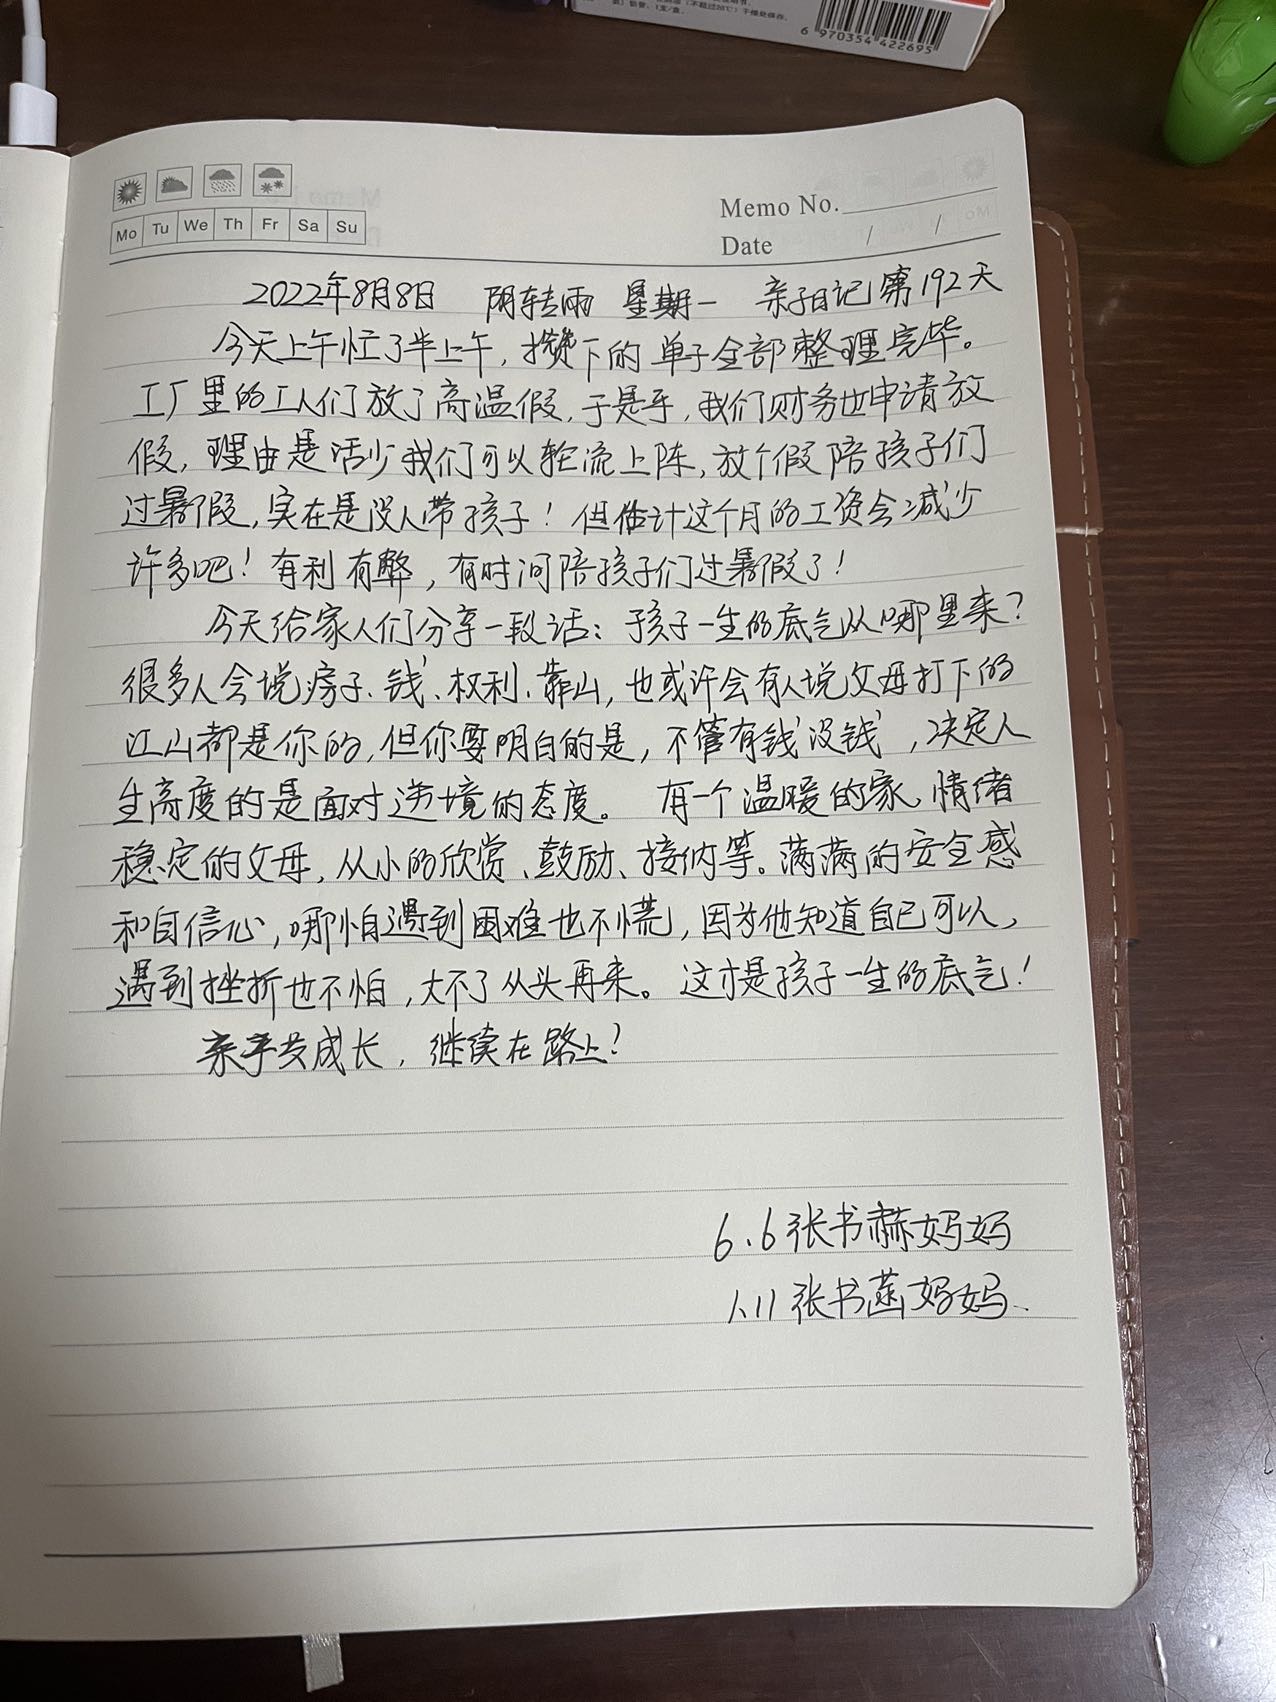 (不超过20℃)干燥处保存。
6 970354 422695
Mo Tu We Th Fr Sa Su
Memo No.
Date / /
2022年8月8日 阴转雨 星期一 亲子日记第192天
今天上午忙了半上午,攒下的单子全部整理完毕。
工厂里的工人们放了高温假,于是乎,我们财务也申请放
假,理由是活少我们可以轮流上阵,放个假陪孩子们
过暑假,实在是没人带孩子!但估计这个月的工资会减少
许多吧!有利有弊,有时间陪孩子们过暑假了!
今天给家人们分享一段话:孩子一生的底气从哪里来?
很多人会说房子、钱、权利、靠山,也或许会有人说父母打下的
江山都是你的,但你要明白的是,不管有钱没钱,决定人
生高度的是面对逆境的态度。 有一个温暖的家、情绪
稳定的父母,从小的欣赏、鼓励、接纳等。满满的安全感
和自信心,哪怕遇到困难也不慌,因为他知道自己可以、
遇到挫折也不怕,大不了从头再来。这才是孩子一生的底气!
亲子共成长,继续在路上!
6.6张书赫妈妈
1.11张书菡妈妈